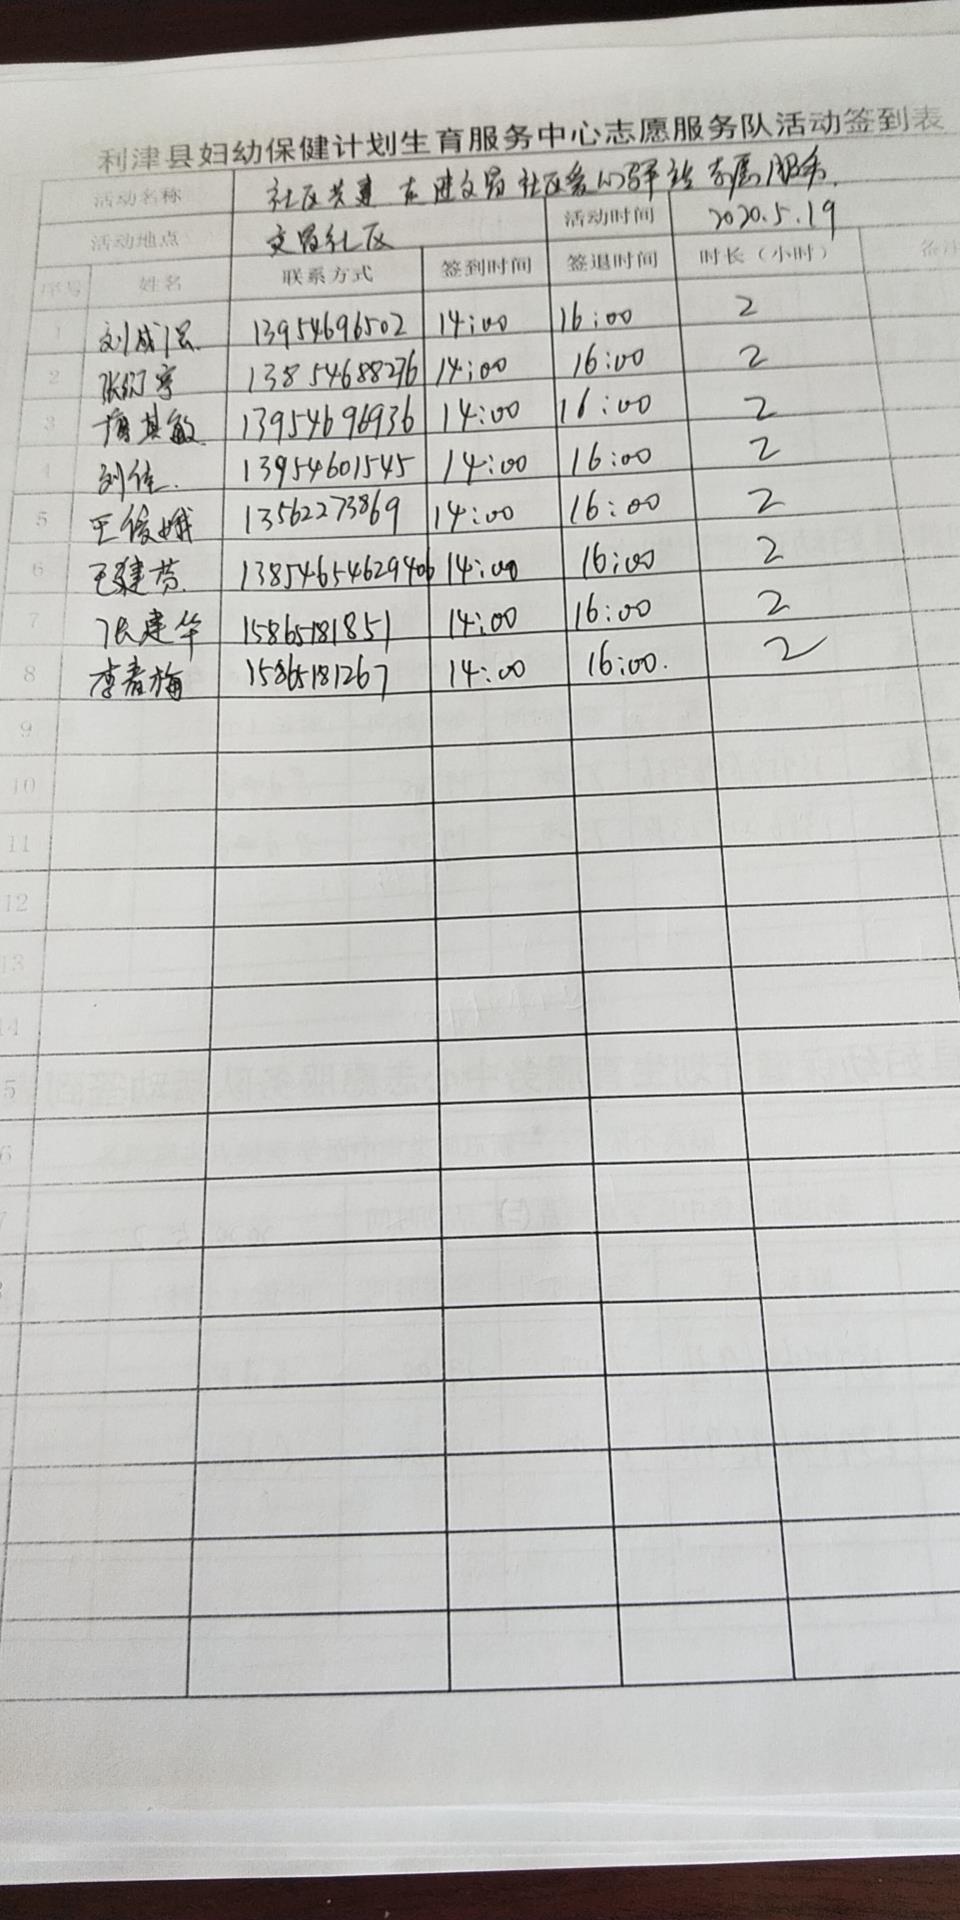 利津县妇幼保健计划生育服务中心志愿服务队活动签到表
活动名称 社区共建 走进文昌社区爱心驿站志愿服务
活动地点 文昌社区 活动时间 2020.5.19
序号 姓名 联系方式 签到时间 签退时间 时长（小时） 备注
1 13954696502 14:00 16:00 2
2 13854688276 14:00 16:00 2
3 13954696936 14:00 16:00 2
4 刘佳 13954601545 14:00 16:00 2
5 王俊娥 13562273869 14:00 16:00 2
6 王建芬 14:00 16:00 2
7 张建华 15865181851 14:00 16:00 2
8 李春梅 15865181267 14:00 16:00. 2
9
10
11
12
13
14
5
6
7
8